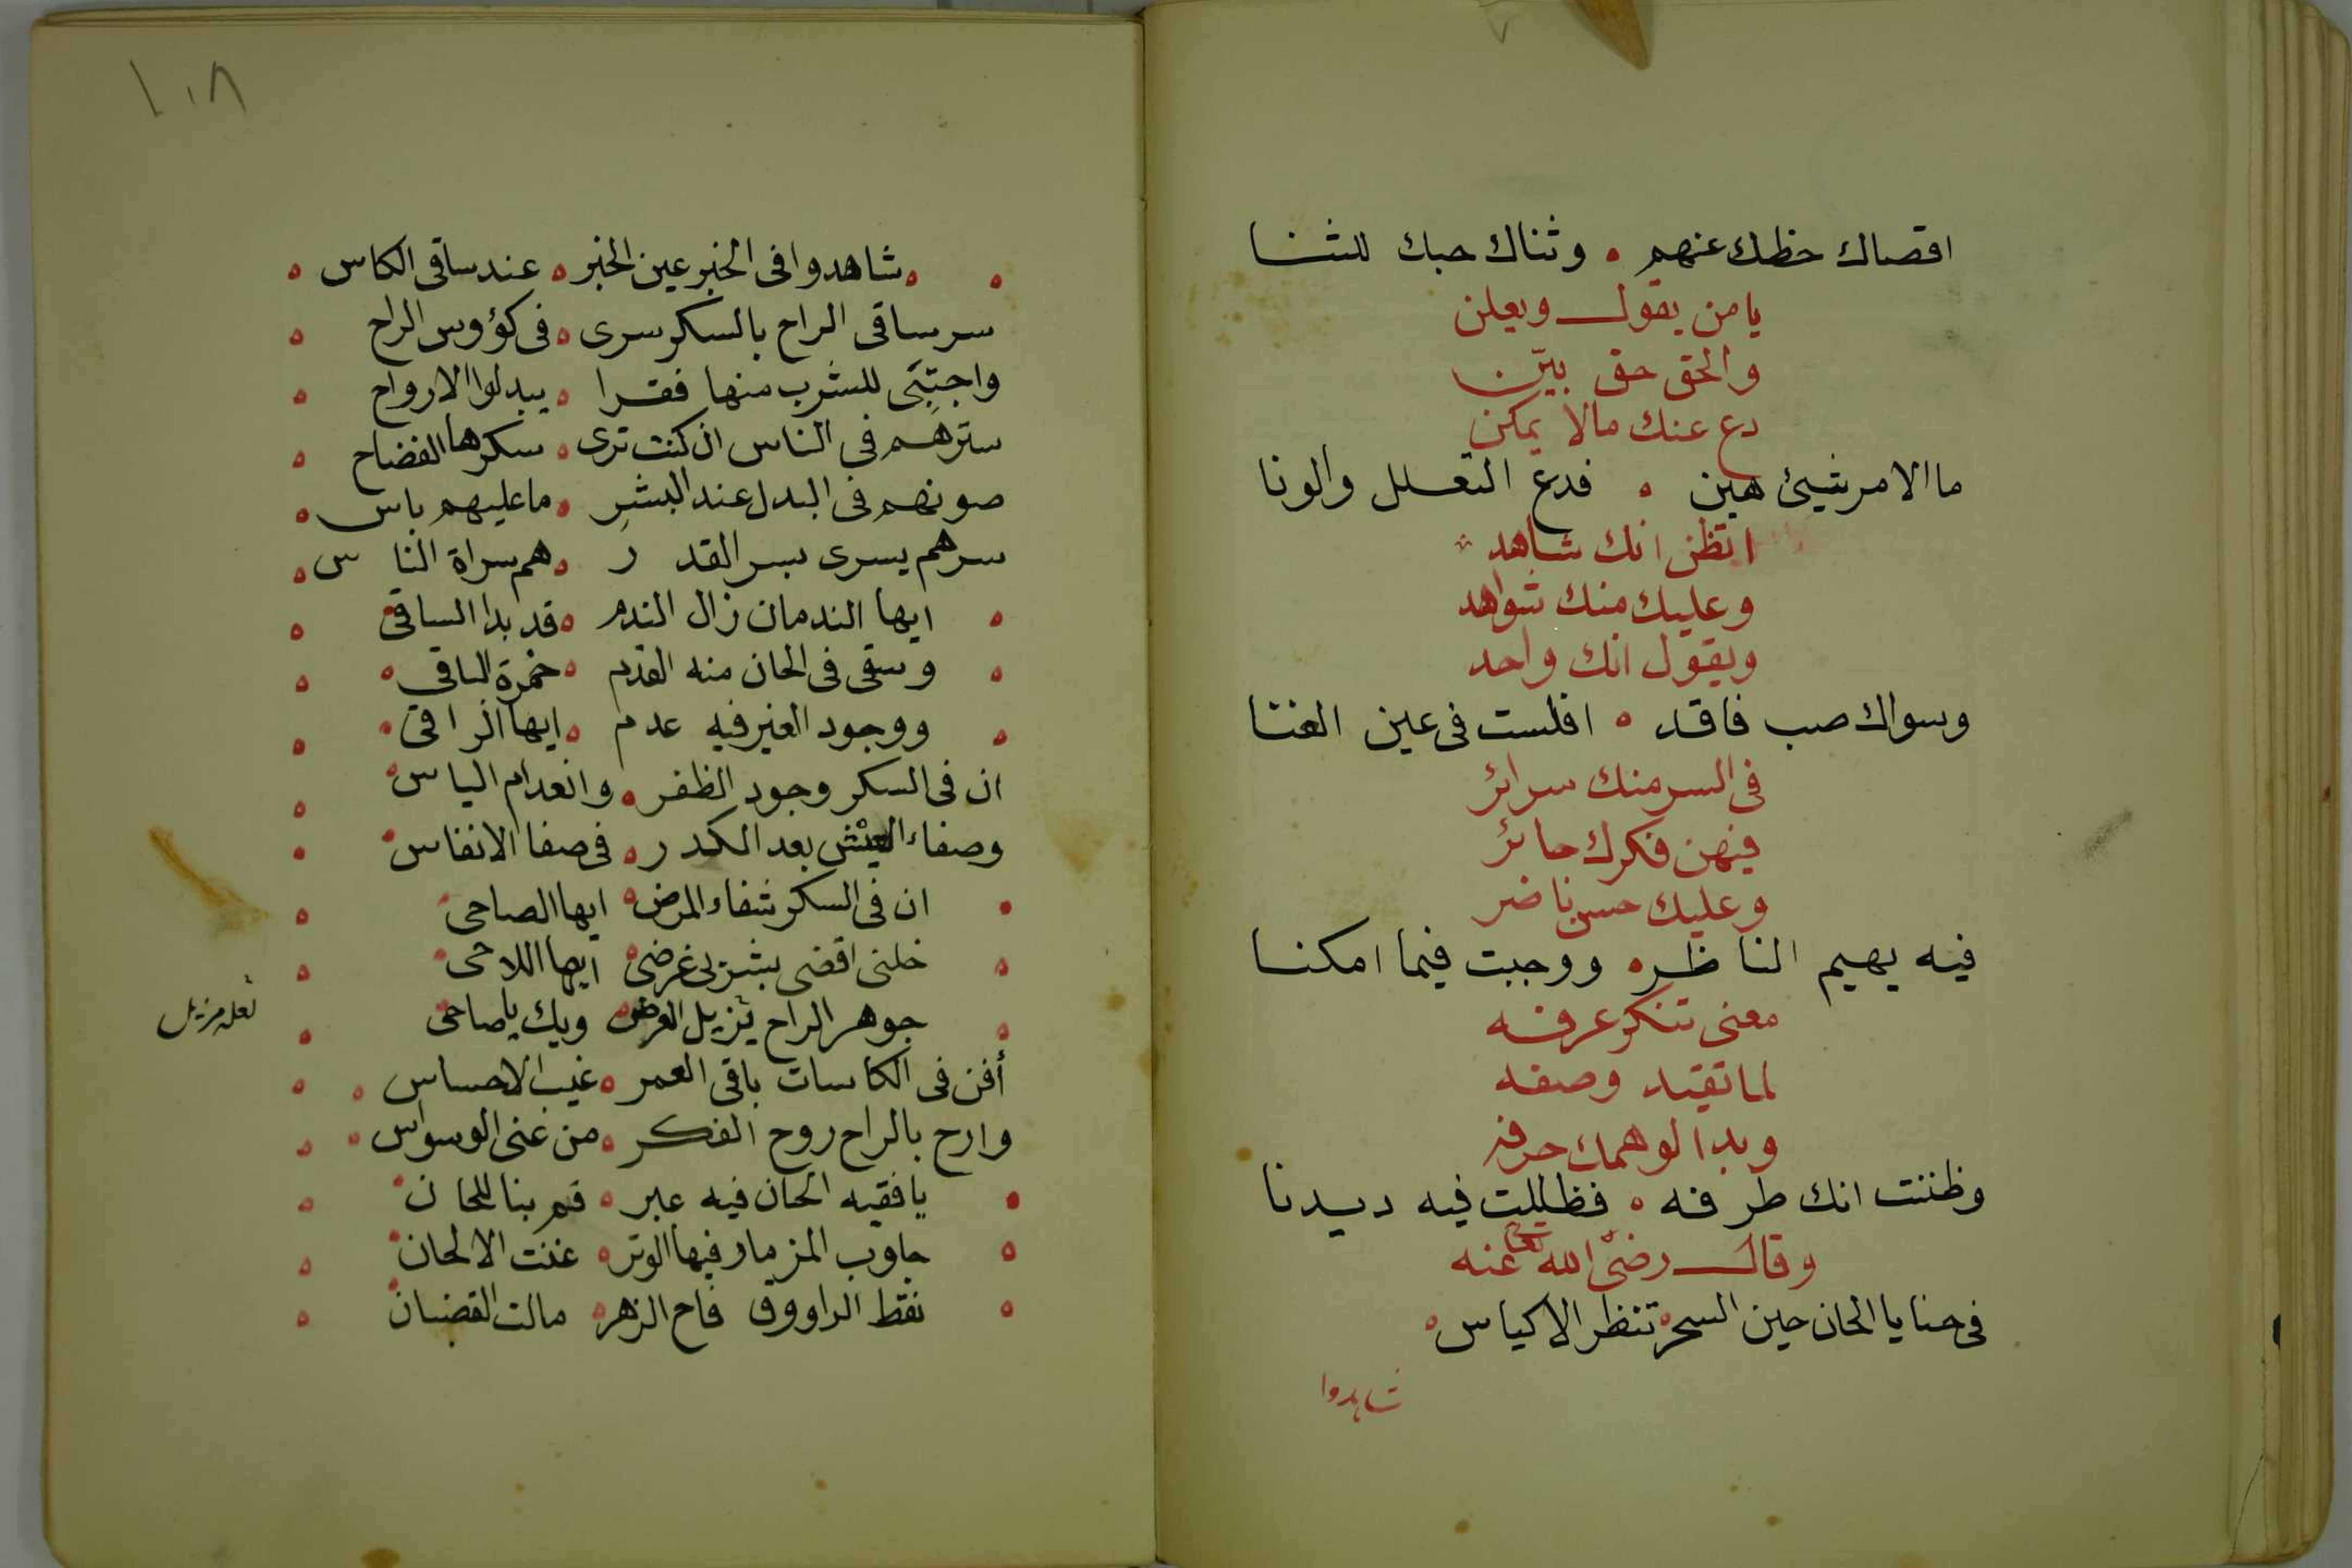 اقصاك حظك عنهم ه وثناك حبك للثنا
يا من يقول ويعلن
والحق حق بيّن
دع عنك مالا يمكن
ما الامر شيئ هين ه فدع التعلل والونا
اتظن انك شاهد
وعليك منك شواهد
ويقول انك واحد
وسواك صب فاقد ه افلست في عين الغنا
في السر منك سرائر
فيهن فكرك حائر
وعليك حسن ناضر
فيه يهيم الناظر ه ووجبت فيما امكنا
معنى تنكر عرفه
لما تقيد وصفه
وبدا لوهمك حرفه
وظننت انك طرفه ه فظللت فيه ديدنا
وقال رضي الله تعا عنه
في حنايا الحان حين السحر ه تنظر الاكياس ه
شاهدوا
١٠٨
شاهدوا في الخبر عين الخبر ه عند ساقي الكاس ه
سر ساقي الراح بالسكر سرى ه في كؤوس الراح ه
واجتبَى للشرب منها فقرا ه يبدلوا الارواح ه
سترهم في الناس ان كنت ترى ه سكرها الفضاح ه
صونهم في البدل عند البشرِ ه ما عليهم باس ه
سرهم يسرى بسر القدر ه هم سراة الناس ه
ايها الندمان زال الندم ه قد بدا الساقي ه
وسقى في الحان منه القدم ه خمرة الباقي ه
ووجود الغير فيه عدم ه ايها الراقي ه
ان في السكر وجود الظفر ه وانعدام الياس ه
وصفاء العيش بعد الكدر ه في صفا الانفاس ه
ان في السكر شفاء المرض ه ايها الصاحي ه
خلني اقضى بشربي غرضي ه ايها اللاحي ه
جوهر الراح تزيل العرض ه ويك يا صاحي ه
لعله مزيل
أفن في الكاسات باقي العمر ه غيب الاحساس ه
وارح بالراح روح الفكر ه من عنى الوسواس ه
يا فقيه الحان فيه عبر ه قم بنا للحان ه
جاوب المزمار فيها الوتر ه غنت الالحان ه
نقط الراووق فاح الزهر ه مالت القضبان ه